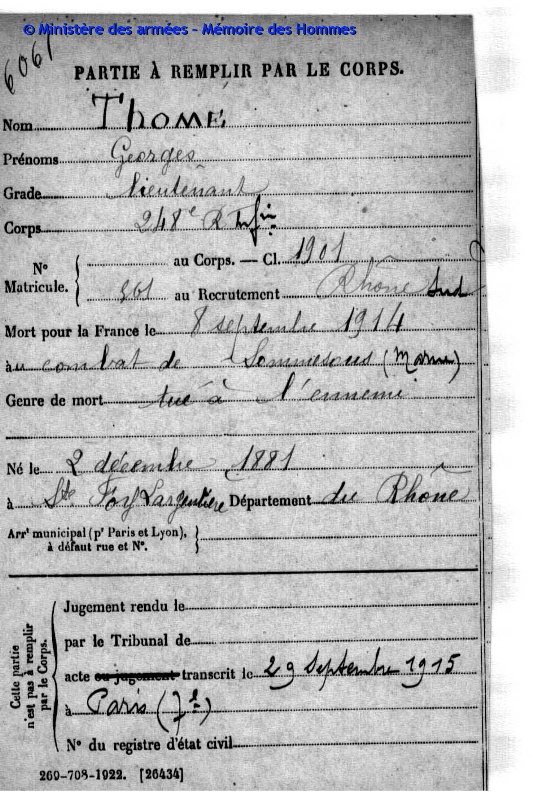 © Ministère des armées - Mémoire des Hommes
6061
PARTIE À REMPLIR PAR LE CORPS.
Nom THOMÉ
Prénoms Georges
Grade lieutenant
Corps 248e R Infie
N° Matricule. { au Corps. — Cl. 1901
961 au Recrutement Rhône Sud
Mort pour la France le 8 septembre 1914
à au combat de Sommesous (Marne)
Genre de mort tué à l'ennemi
Né le 2 décembre 1881
à Ste Foy Largentière Département du Rhône
Arrt municipal (pr Paris et Lyon), à défaut rue et N°. }
Cette partie n'est pas à remplir par le Corps.
Jugement rendu le
par le Tribunal de
acte ou jugement transcrit le 29 Septembre 1915
à Paris (7e)
N° du registre d'état civil
269-708-1922. [26434]